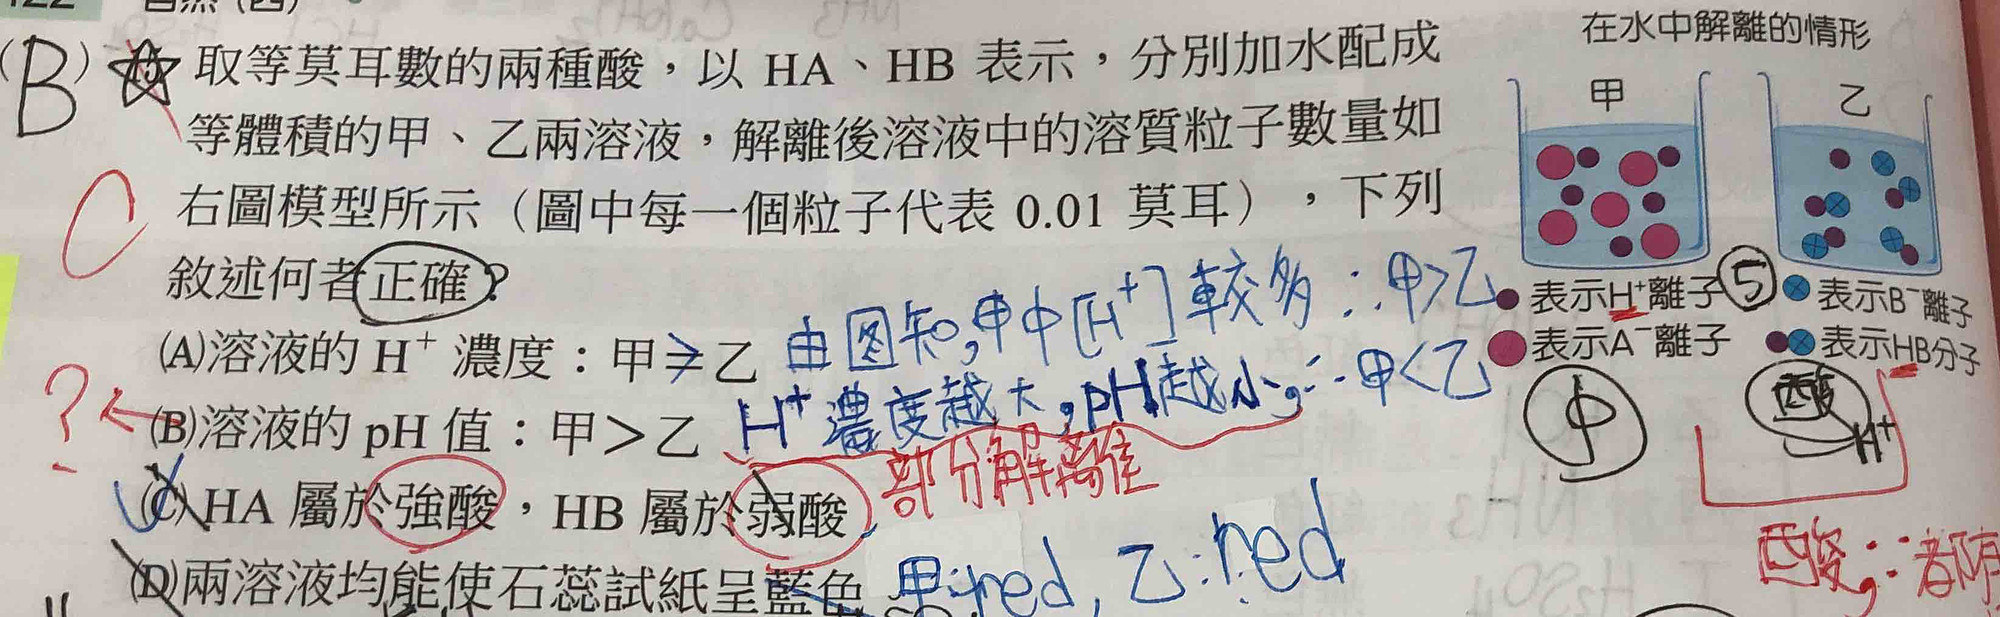 (B) 取等莫耳數的兩種酸，以 HA、HB 表示，分別加水配成
等體積的甲、乙兩溶液，解離後溶液中的溶質粒子數量如
右圖模型所示（圖中每一個粒子代表 0.01 莫耳），下列
敘述何者正確？
(A)溶液的 H⁺ 濃度：甲＝乙 由图知,甲中[H⁺]較多 ∴甲>乙
(B)溶液的 pH 值：甲＞乙 H⁺濃度越大,pH越小,∴甲<乙
(C) HA 屬於強酸，HB 屬於弱酸
部分解離
(D)兩溶液均能使石蕊試紙呈藍色 甲:red, 乙:red
C
?
在水中解離的情形
甲 乙
表示H⁺離子 ⑤ 表示B⁻離子
表示A⁻離子 表示HB分子
中 酸 H⁺
酸,∵都有